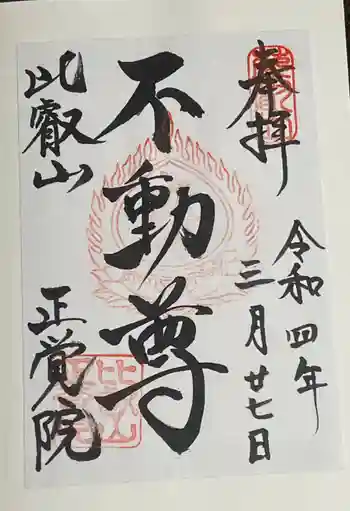 奉拝
令和四年
三月廿七日
不動尊
比叡山
正覚院